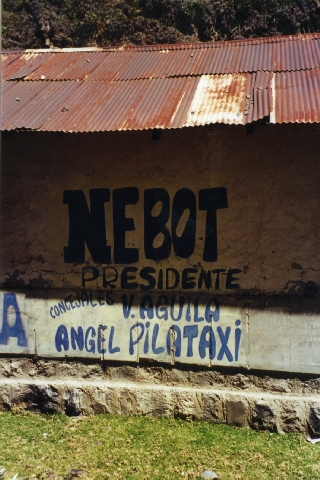 NEBOT
PRESIDENTE
CONCEJALES V. AGUILA
A ANGEL PILATAXI